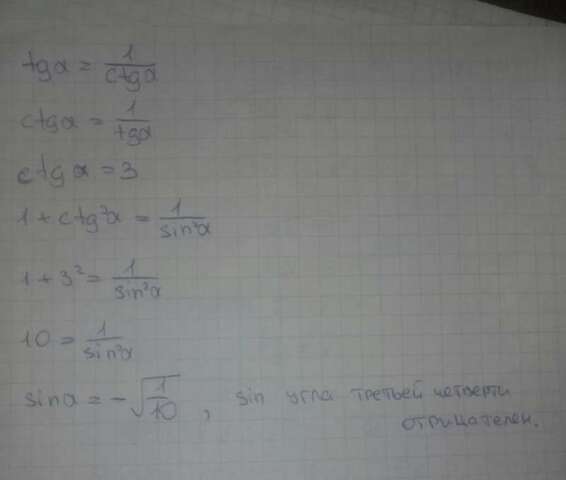 tgα = 1/ctgα
ctgα = 1/tgα
ctgα = 3
1 + ctg²α = 1/sin²α
1 + 3² = 1/sin²α
10 = 1/sin²α
sinα = -√(1/10) , sin угла третьей четверти
отрицателен.